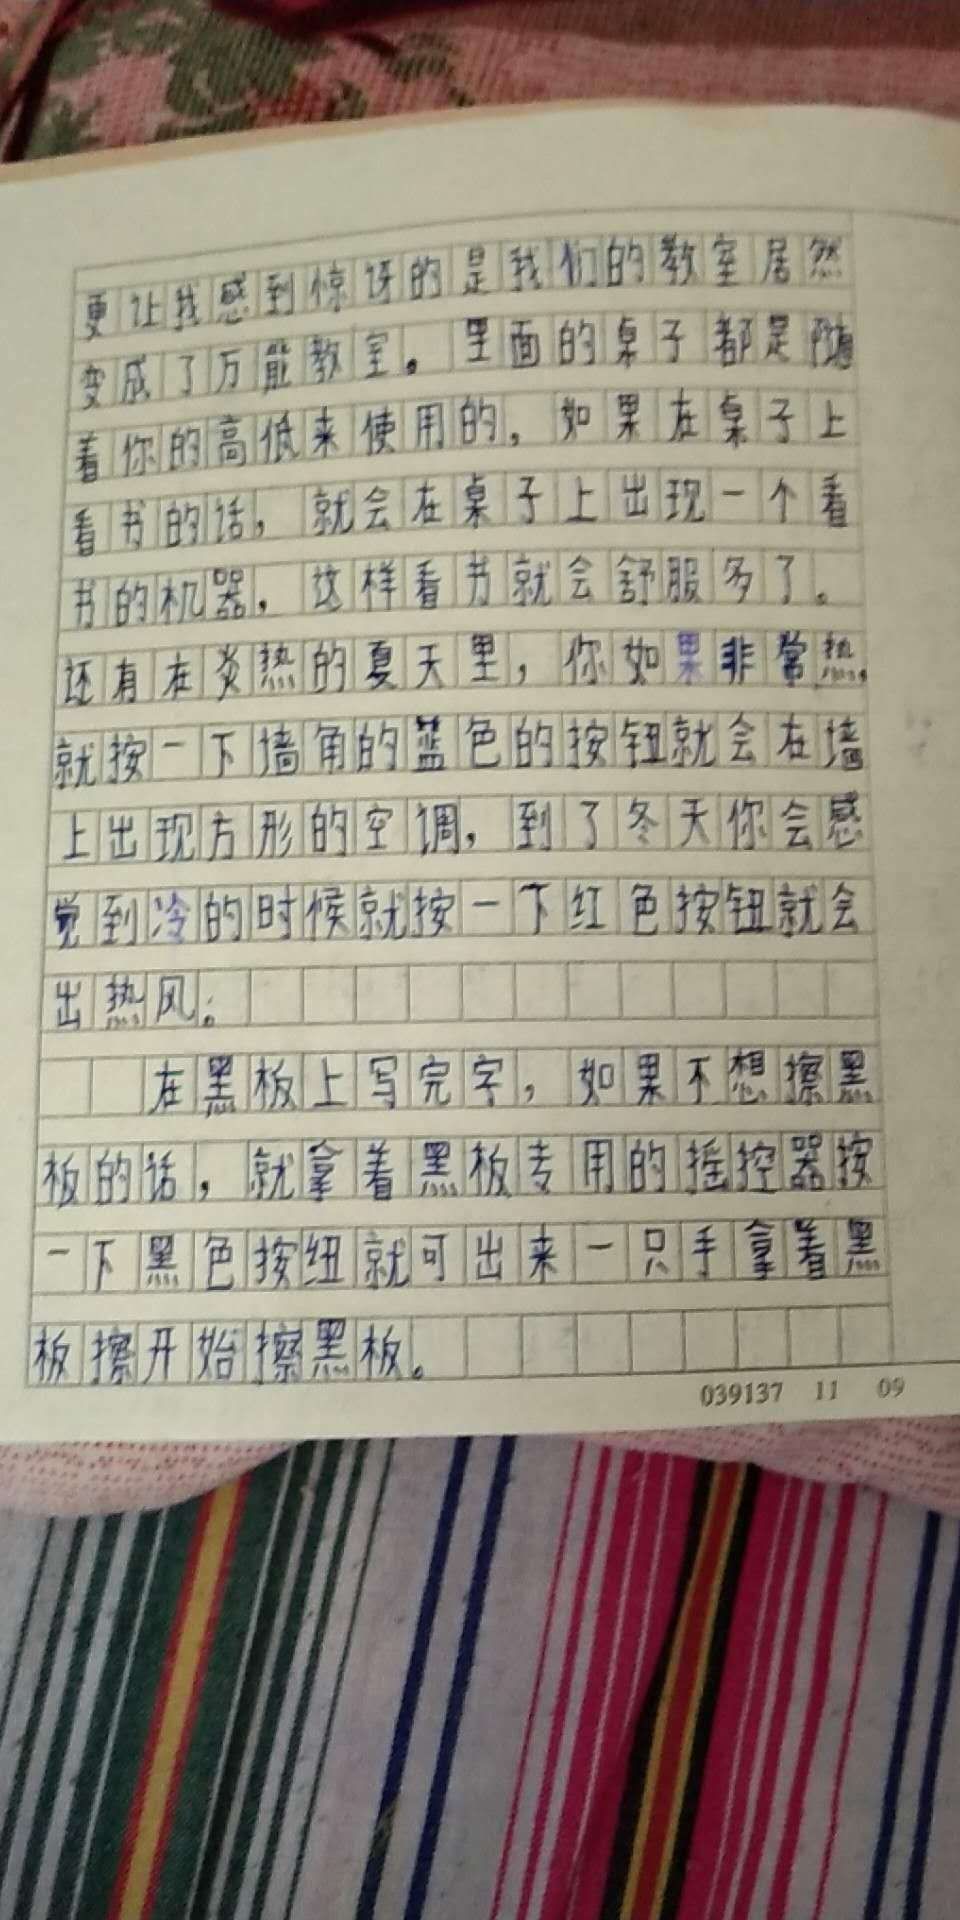 更让我感到惊讶的是我们的教室居然
变成了万能教室。里面的桌子都是随
着你的高低来使用的，如果在桌子上
看书的话，就会在桌子上出现一个看
书的机器，这样看书就会舒服多了。
还有在炎热的夏天里，你如果非常热，
就按一下墙角的蓝色的按钮就会在墙
上出现方形的空调，到了冬天你会感
觉到冷的时候就按一下红色按钮就会
出热风。
在黑板上写完字，如果不想擦黑
板的话，就拿着黑板专用的摇控器按
一下黑色按纽就可出来一只手拿着黑
板擦开始擦黑板。
039137 11 09